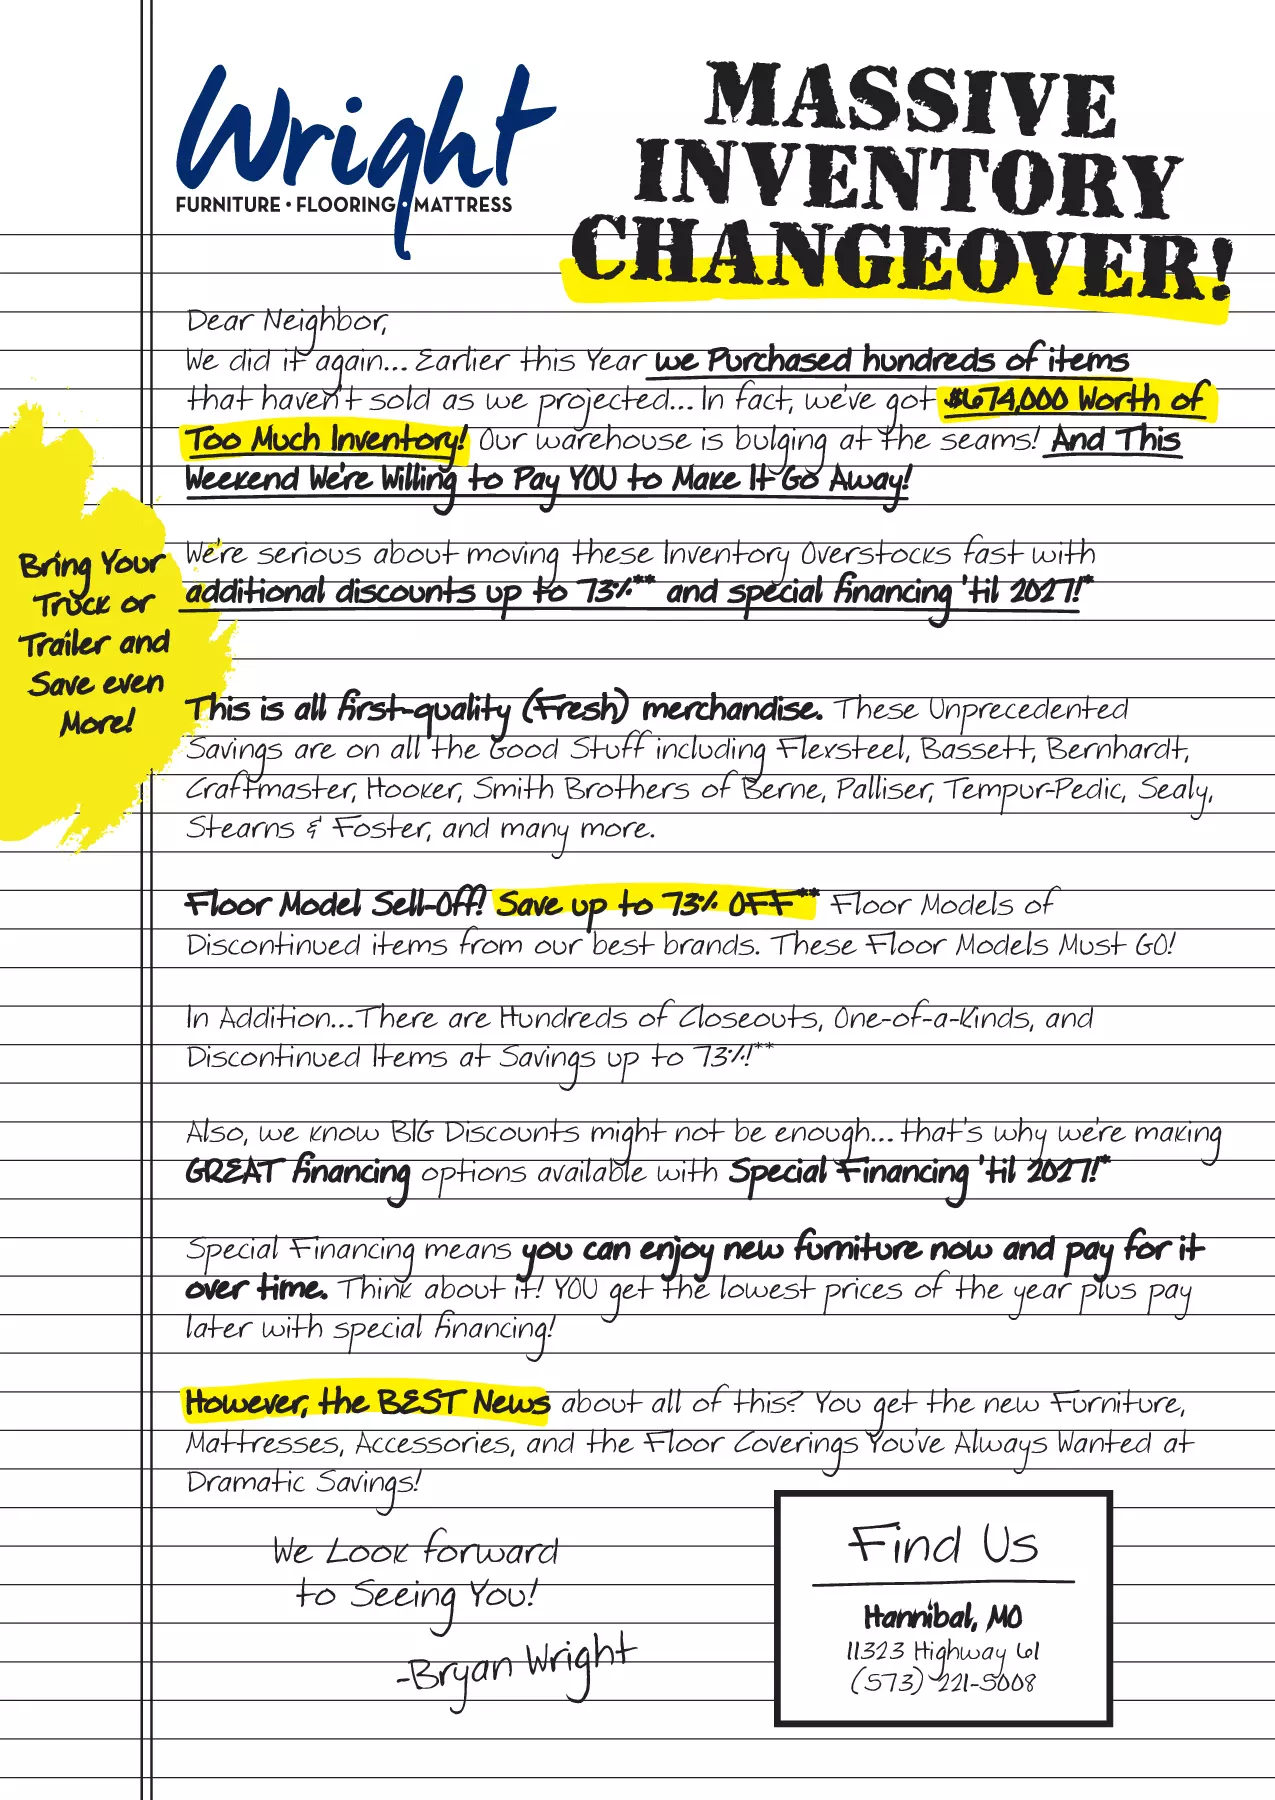 Wright
FURNITURE • FLOORING • MATTRESS
MASSIVE
INVENTORY
CHANGEOVER!
Dear Neighbor,
We did it again... Earlier this Year we Purchased hundreds of items
that haven't sold as we projected... In fact, we've got $674,000 Worth of
Too Much Inventory! Our warehouse is bulging at the seams! And This
Weekend We're Willing to Pay YOU to Make It Go Away!
Bring Your
Truck or
Trailer and
Save even
More!
We're serious about moving these Inventory Overstocks fast with
additional discounts up to 73%** and special financing 'til 2027!*
This is all first-quality (Fresh) merchandise. These Unprecedented
Savings are on all the Good Stuff including Flexsteel, Bassett, Bernhardt,
Craftmaster, Hooker, Smith Brothers of Berne, Palliser, Tempur-Pedic, Sealy,
Stearns & Foster, and many more.
Floor Model Sell-Off! Save up to 73% OFF** Floor Models of
Discontinued items from our best brands. These Floor Models Must GO!
In Addition...There are Hundreds of Closeouts, One-of-a-Kinds, and
Discontinued Items at Savings up to 73%!**
Also, we know BIG Discounts might not be enough... that's why we're making
GREAT financing options available with Special Financing 'til 2027!*
Special Financing means you can enjoy new furniture now and pay for it
over time. Think about it! YOU get the lowest prices of the year plus pay
later with special financing!
However, the BEST News about all of this? You get the new Furniture,
Mattresses, Accessories, and the Floor Coverings You've Always Wanted at
Dramatic Savings!
We Look forward
to Seeing You!
-Bryan Wright
Find Us
Hannibal, MO
11323 Highway 61
(573) 221-5008